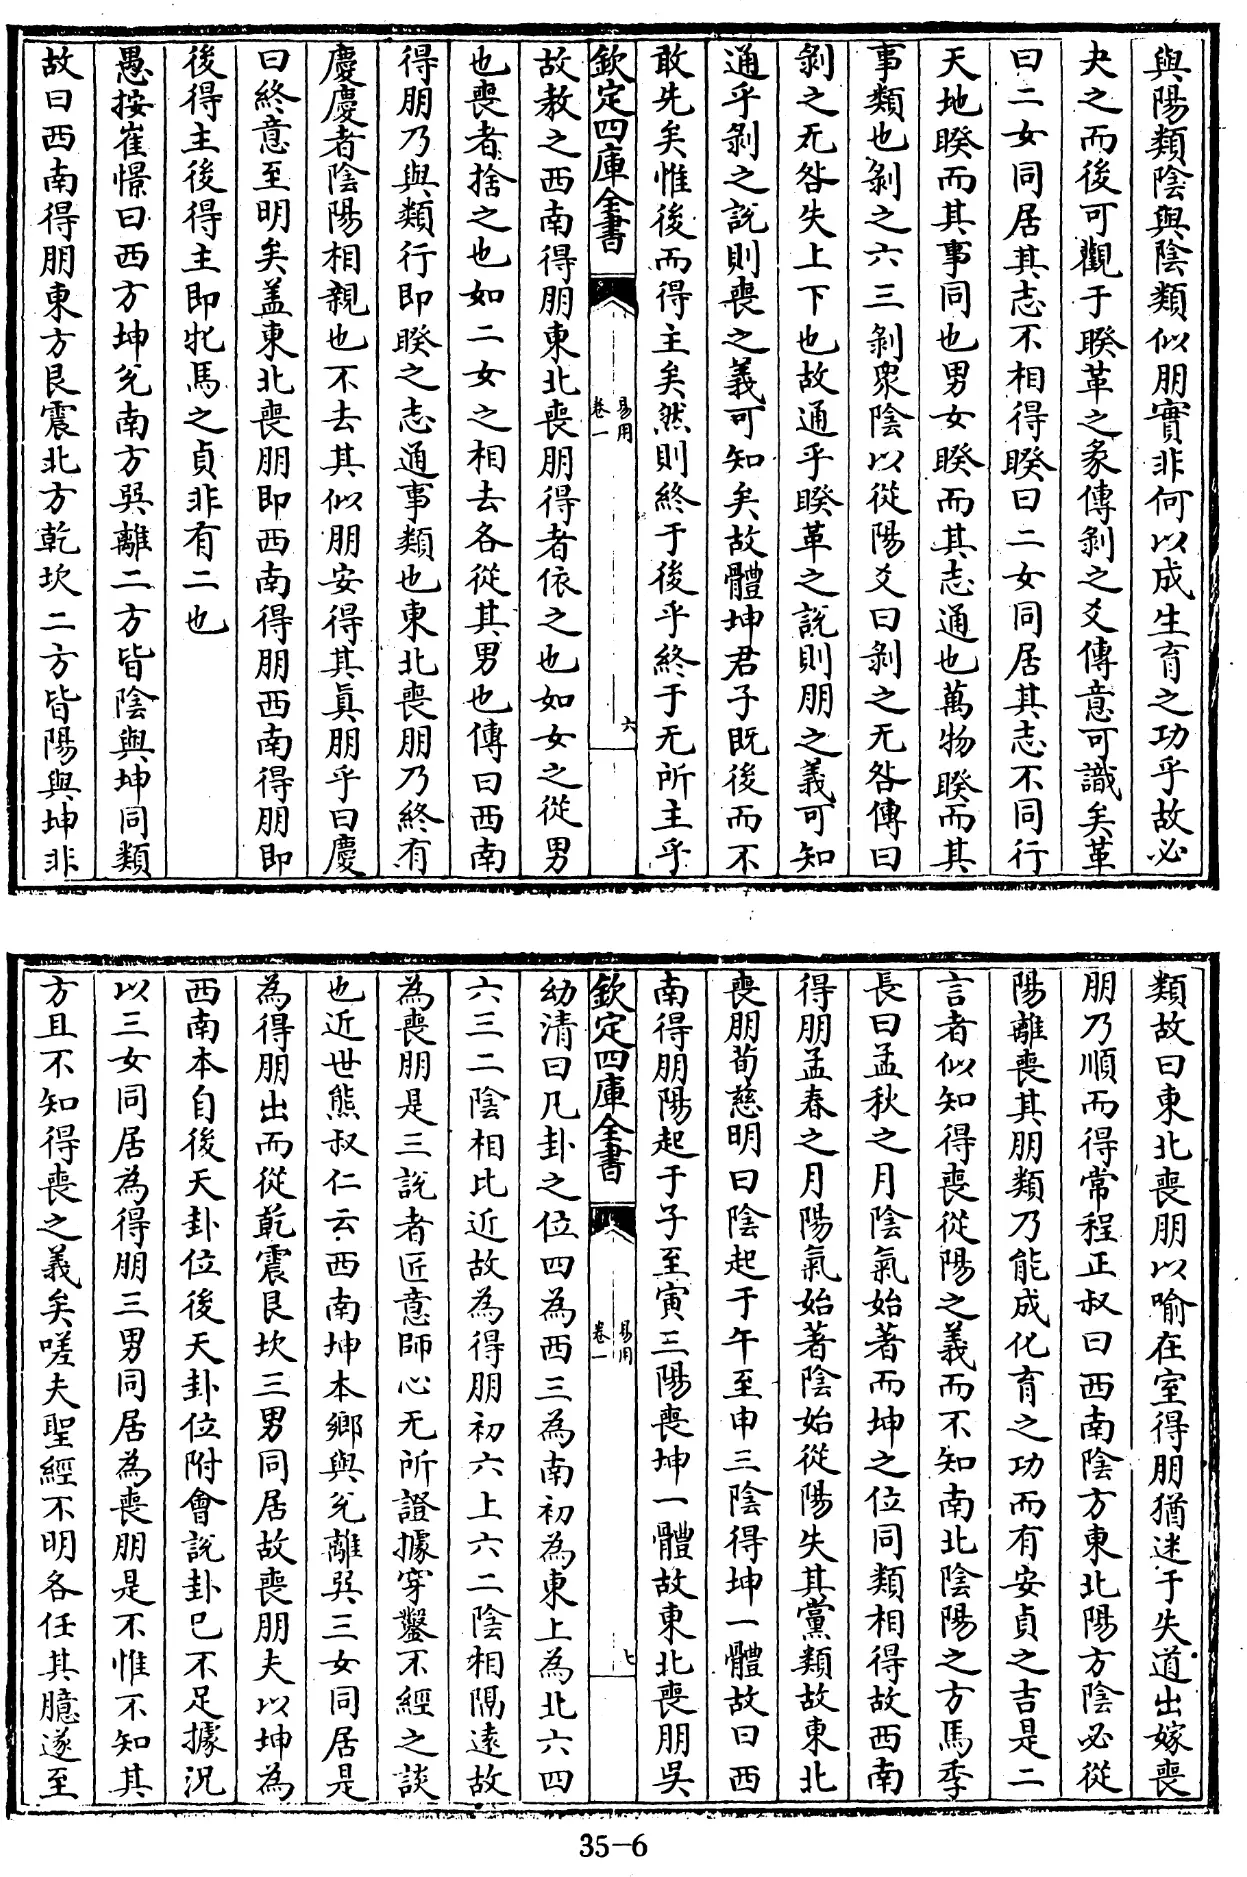 與陽類陰與陰類似朋實非何以成生育之功乎故必
夬之而後可觀于睽革之彖傳剝之爻傳意可識矣革
曰二女同居其志不相得睽曰二女同居其志不同行
天地睽而其事同也男女睽而其志通也萬物睽而其
事類也剝之六三剝衆陰以從陽爻曰剝之无咎傳曰
剝之无咎失上下也故通乎睽革之說則朋之義可知
通乎剝之說則喪之義可知矣故體坤君子既後而不
敢先矣惟後而得主矣然則終于後乎終于无所主乎
欽定四庫全書
易用
卷一
六
故教之西南得朋東北喪朋得者依之也如女之從男
也喪者捨之也如二女之相去各從其男也傳曰西南
得朋乃與類行即睽之志通事類也東北喪朋乃終有
慶慶者陰陽相親也不去其似朋安得其眞朋乎曰慶
曰終意至明矣盖東北喪朋即西南得朋西南得朋即
後得主後得主即牝馬之貞非有二也
愚按崔憬曰西方坤兌南方巽離二方皆陰與坤同類
故曰西南得朋東方艮震北方乾坎二方皆陽與坤非
類故曰東北喪朋以喻在室得朋猶迷于失道出嫁喪
朋乃順而得常程正叔曰西南陰方東北陽方陰必從
陽離喪其朋類乃能成化育之功而有安貞之吉是二
言者似知得喪從陽之義而不知南北陰陽之方馬季
長曰孟秋之月陰氣始著而坤之位同類相得故西南
得朋孟春之月陽氣始著陰始從陽失其黨類故東北
喪朋荀慈明曰陰起于午至申三陰得坤一體故曰西
南得朋陽起于子至寅三陽喪坤一體故東北喪朋吳
欽定四庫全書
易用
卷一
七
幼清曰凡卦之位四為西三為南初為東上為北六四
六三二陰相比近故為得朋初六上六二陰相隔遠故
為喪朋是三說者匠意師心无所證據穿鑿不經之談
也近世熊叔仁云西南坤本鄉與兌離巽三女同居是
為得朋出而從乾震艮坎三男同居故喪朋夫以坤為
西南本自後天卦位後天卦位附會說卦已不足據況
以三女同居為得朋三男同居為喪朋是不惟不知其
方且不知得喪之義矣嗟夫聖經不明各任其臆遂至
35-6